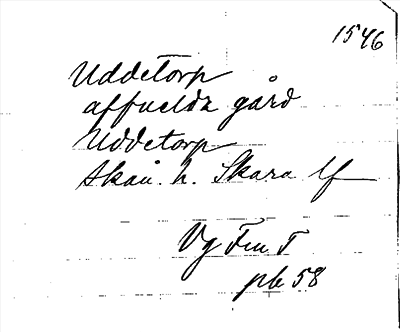 1546
Uddetorp
affuelda gård
Uddetorp
Skån. h. Skara lf
Vg Fm T
pb 58